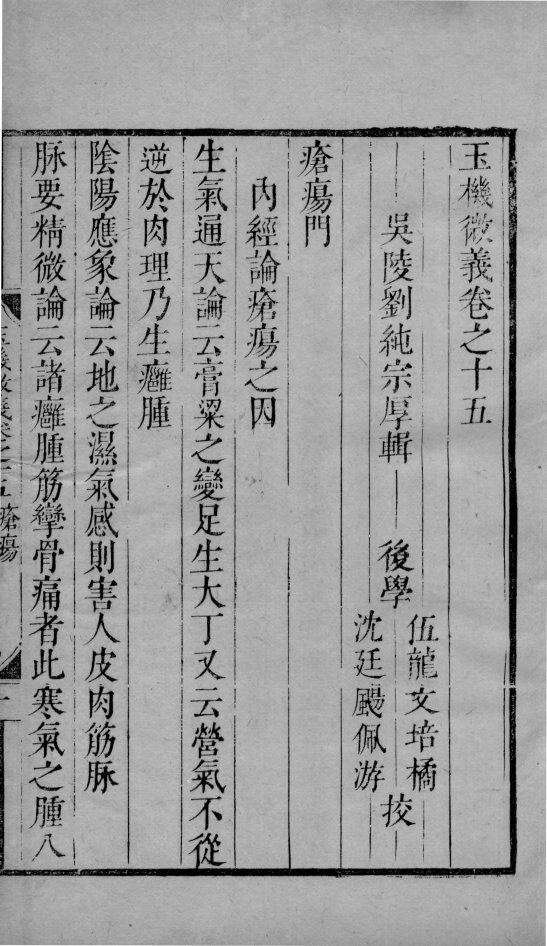 玉機微義卷之十五
吳陵劉純宗厚輯
後學
伍龍文培橘
沈廷颺佩游
挍
瘡瘍門
內經論瘡瘍之因
生氣通天論云膏粱之變足生大丁又云營氣不從
逆於肉理乃生癰腫
陰陽應象論云地之濕氣感則害人皮肉筋脉
脉要精微論云諸癰腫筋攣骨痛者此寒氣之腫八
玉機微義卷之十五 瘡瘍 一